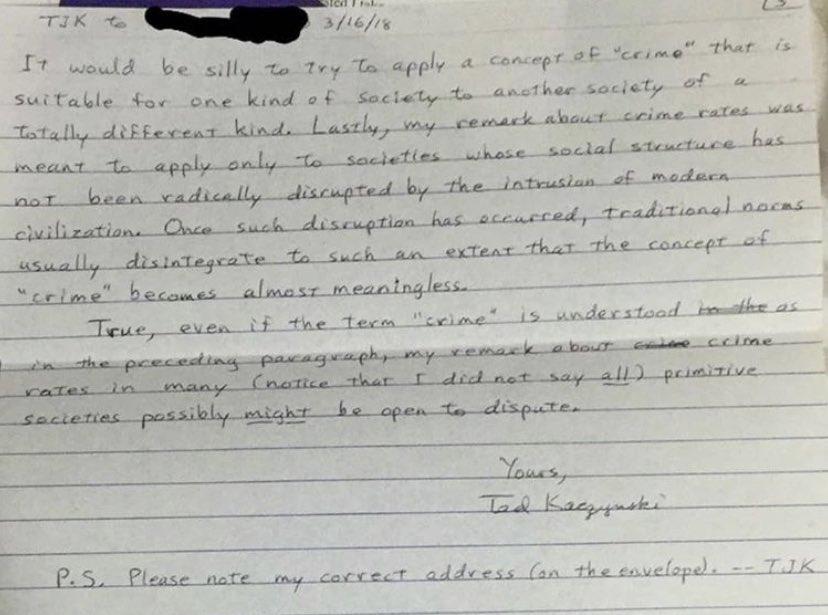 TJK to 3/16/18
It would be silly to try to apply a concept of "crime" that is
suitable for one kind of society to another society of a
totally different kind. Lastly, my remark about crime rates was
meant to apply only to societies whose social structure has
not been radically disrupted by the intrusion of modern
civilization. Once such disruption has occurred, traditional norms
usually disintegrate to such an extent that the concept of
"crime" becomes almost meaningless.
True, even if the term "crime" is understood in the as
in the preceding paragraph, my remark about crime crime
rates in many (notice that I did not say all) primitive
societies possibly might be open to dispute.
Yours,
Ted Kaczynski
P.S. Please note my correct address (on the envelope). -- TJK